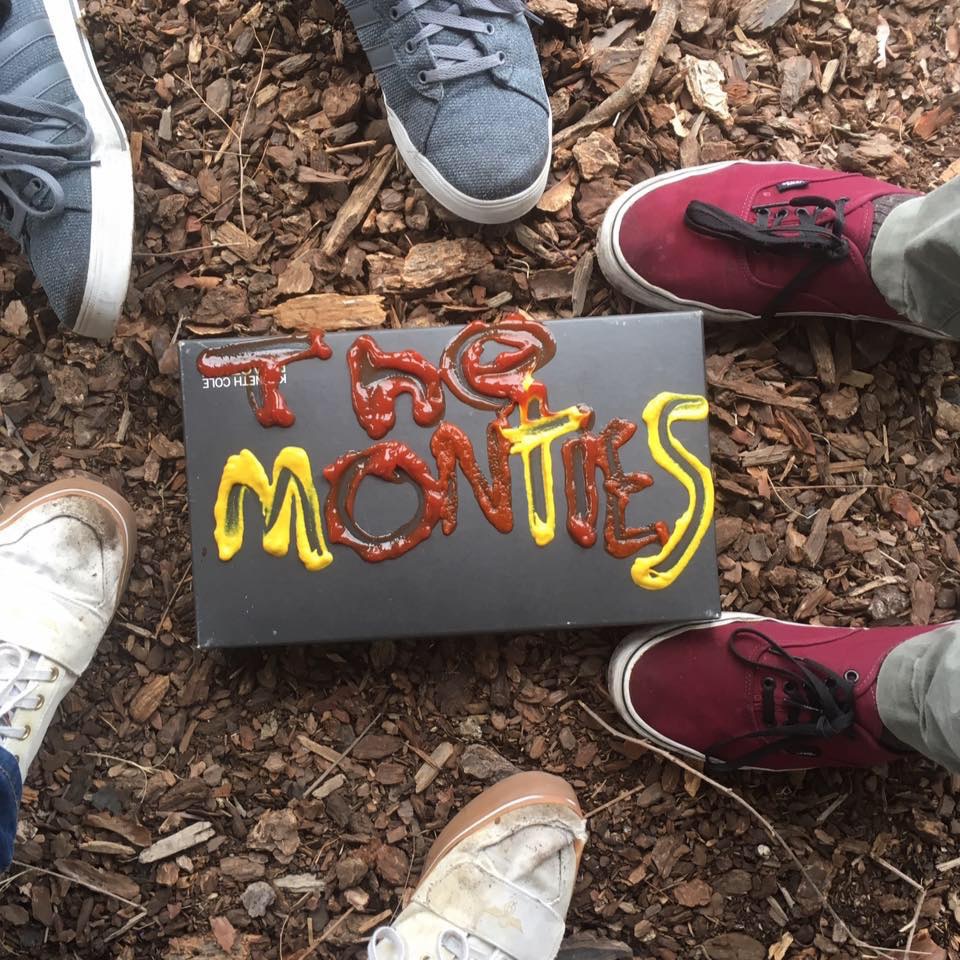 The
MONTIES
KENNETH COLE